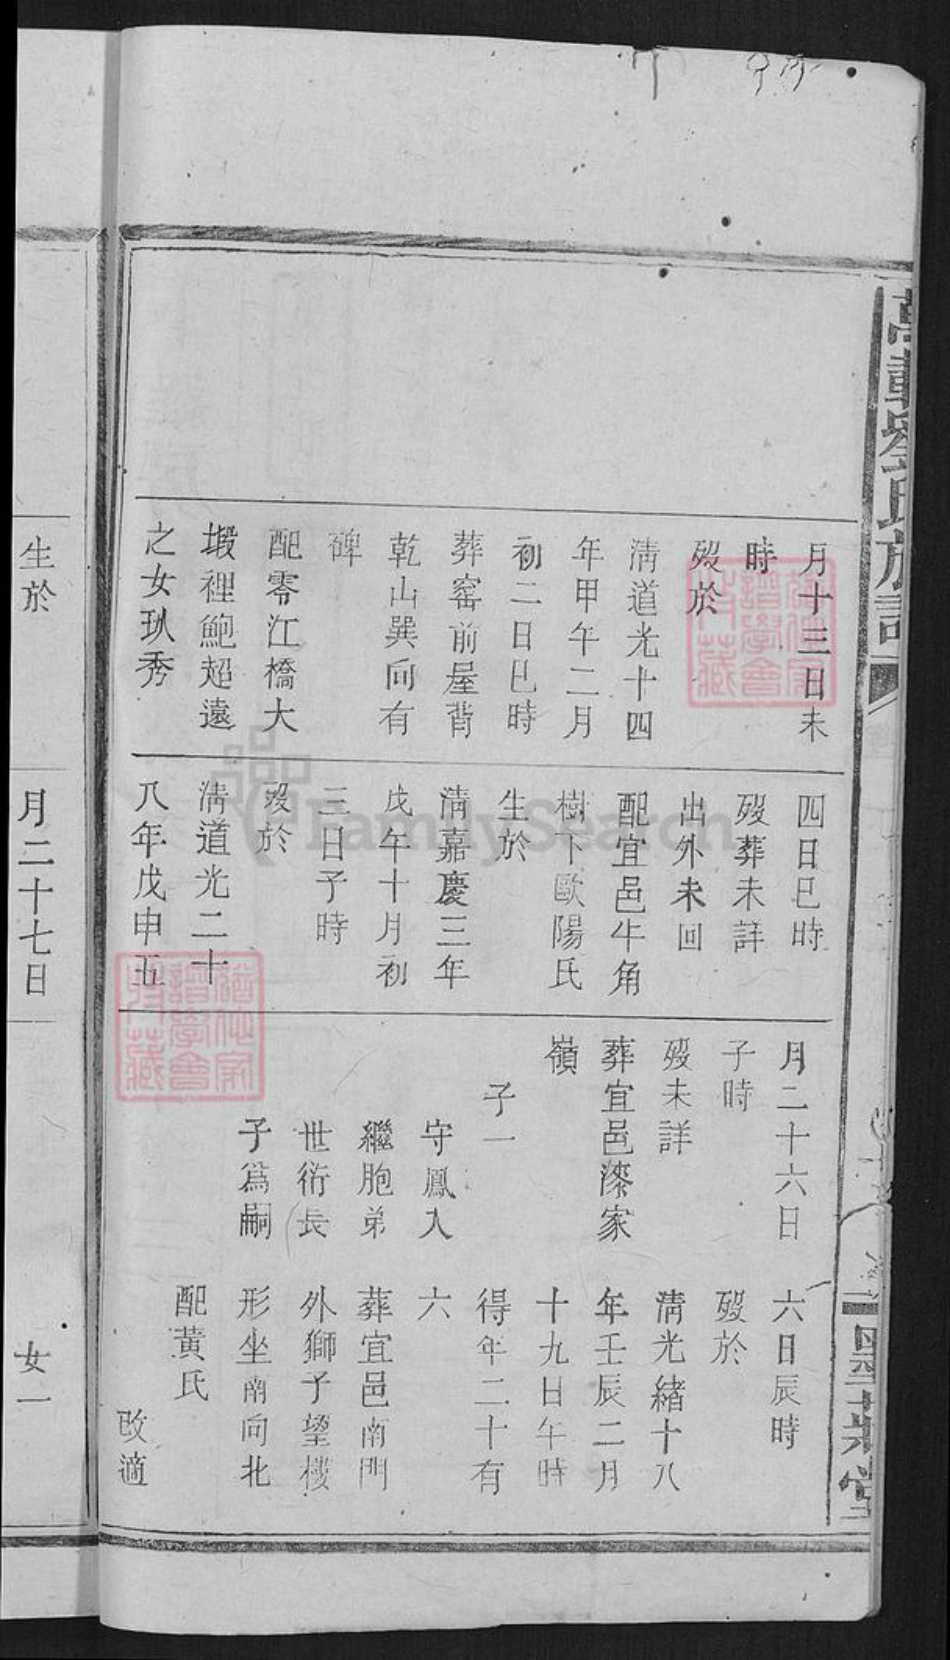 月十三日未
時
歿於
淸道光十四
年甲午二月
初二日巳時
葬窰前屋背
乾山巽向有
碑
配零江橋大
塅裡鮑超遠
之女
四日巳時
歿葬未詳
出外未回
配宜邑牛角
樹下歐陽氏
生於
淸嘉慶三年
戊午十月初
三日子時
歿於
淸道光二十
八年戊申五
月二十六日
子時
歿未詳
葬宜邑漆家
嶺
子一
守鳳入
繼胞弟
世衍長
子爲嗣
六日辰時
歿於
淸光緒十八
年壬辰二月
十九日午時
得年二十有
六
葬宜邑南門
外獅子望樓
形坐南向北
配黃氏
改適
生於
月二十七日
女一
萬載劉氏族譜
譜學會
藏
譜學會
藏
FamilySearch